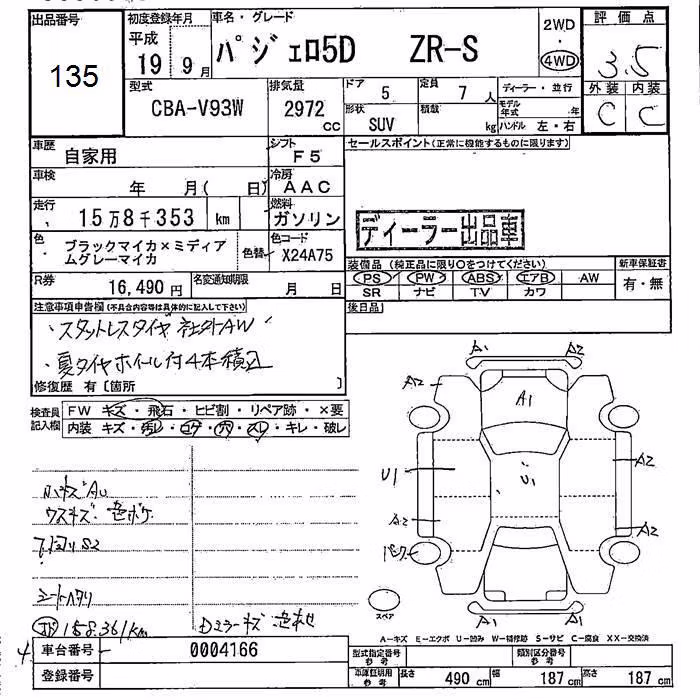 出品番号
135
初度登録年月
平成
19 9月
車名・グレード
パジェロ5D ZR-S
2WD
4WD
評価点
3.5
外装 内装
C C
型式
CBA-V93W
排気量
2972
CC
ドア 5
定員 7人
形状 SUV
積載 kg
ディーラー・並行
モデル年式 年
ハンドル 左・右
車歴 自家用
シフト F5
セールスポイント(正常に機能するものに限ります)
車検 年 月( 日)
冷房 AAC
走行 15万8千353 km
燃料 ガソリン
ディーラー出品車
色 ブラックマイカ×ミディアムグレーマイカ
色替
色コード X24A75
装備品 (純正品に限り○をつけてください)
PS PW ABS エアB AW
SR ナビ TV カワ
新車保証書
有・無
R券 16,490円
名変通知期限 月 日
後日品
注意事項申告欄(不具合内容等は具体的に記入して下さい)
・スタットレスタイヤ 社外AW
・夏タイヤホイール付4本積込
修復歴 有〔箇所 〕
検査員記入欄
FW キズ・飛石・ヒビ割・リペア跡・×要
内装 キズ・汚レ・コゲ・穴・スレ・キレ・破レ
ウスキズ・色ボケ
シートヘタリ
158,361km
Dミラーキズ
A1 A2
A2
A1
U1
U1
A2
A2
A2
A1 A1
スペア
A-キズ E-エクボ U-凹み W-補修跡 S-サビ C-腐食 XX-交換済
車台番号 0004166
登録番号
型式指定番号 参考
類別区分番号 参考
車庫証明用 参考
長さ 490 cm 幅 187 cm 高さ 187 cm